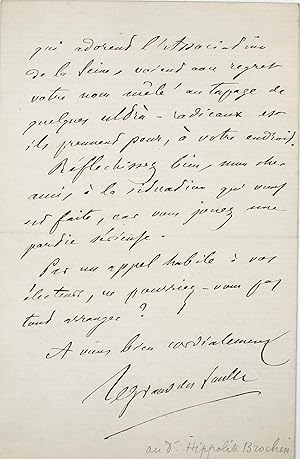 qui adorent l'Association
de la Seine, voient avec regret
votre nom mêlé au tapage de
quelques ultra-radicaux et
ils prennent peur, à votre endroit.
Réfléchissez bien, mon cher
ami, à la situation qui vous
est faite, car vous jouez une
partie sérieuse.
Par un appel habile à vos
électeurs, ne pourriez-vous pas
tout arranger ?
A vous bien cordialement
Legrand du Saulle
au Dr Hippolite Brochin